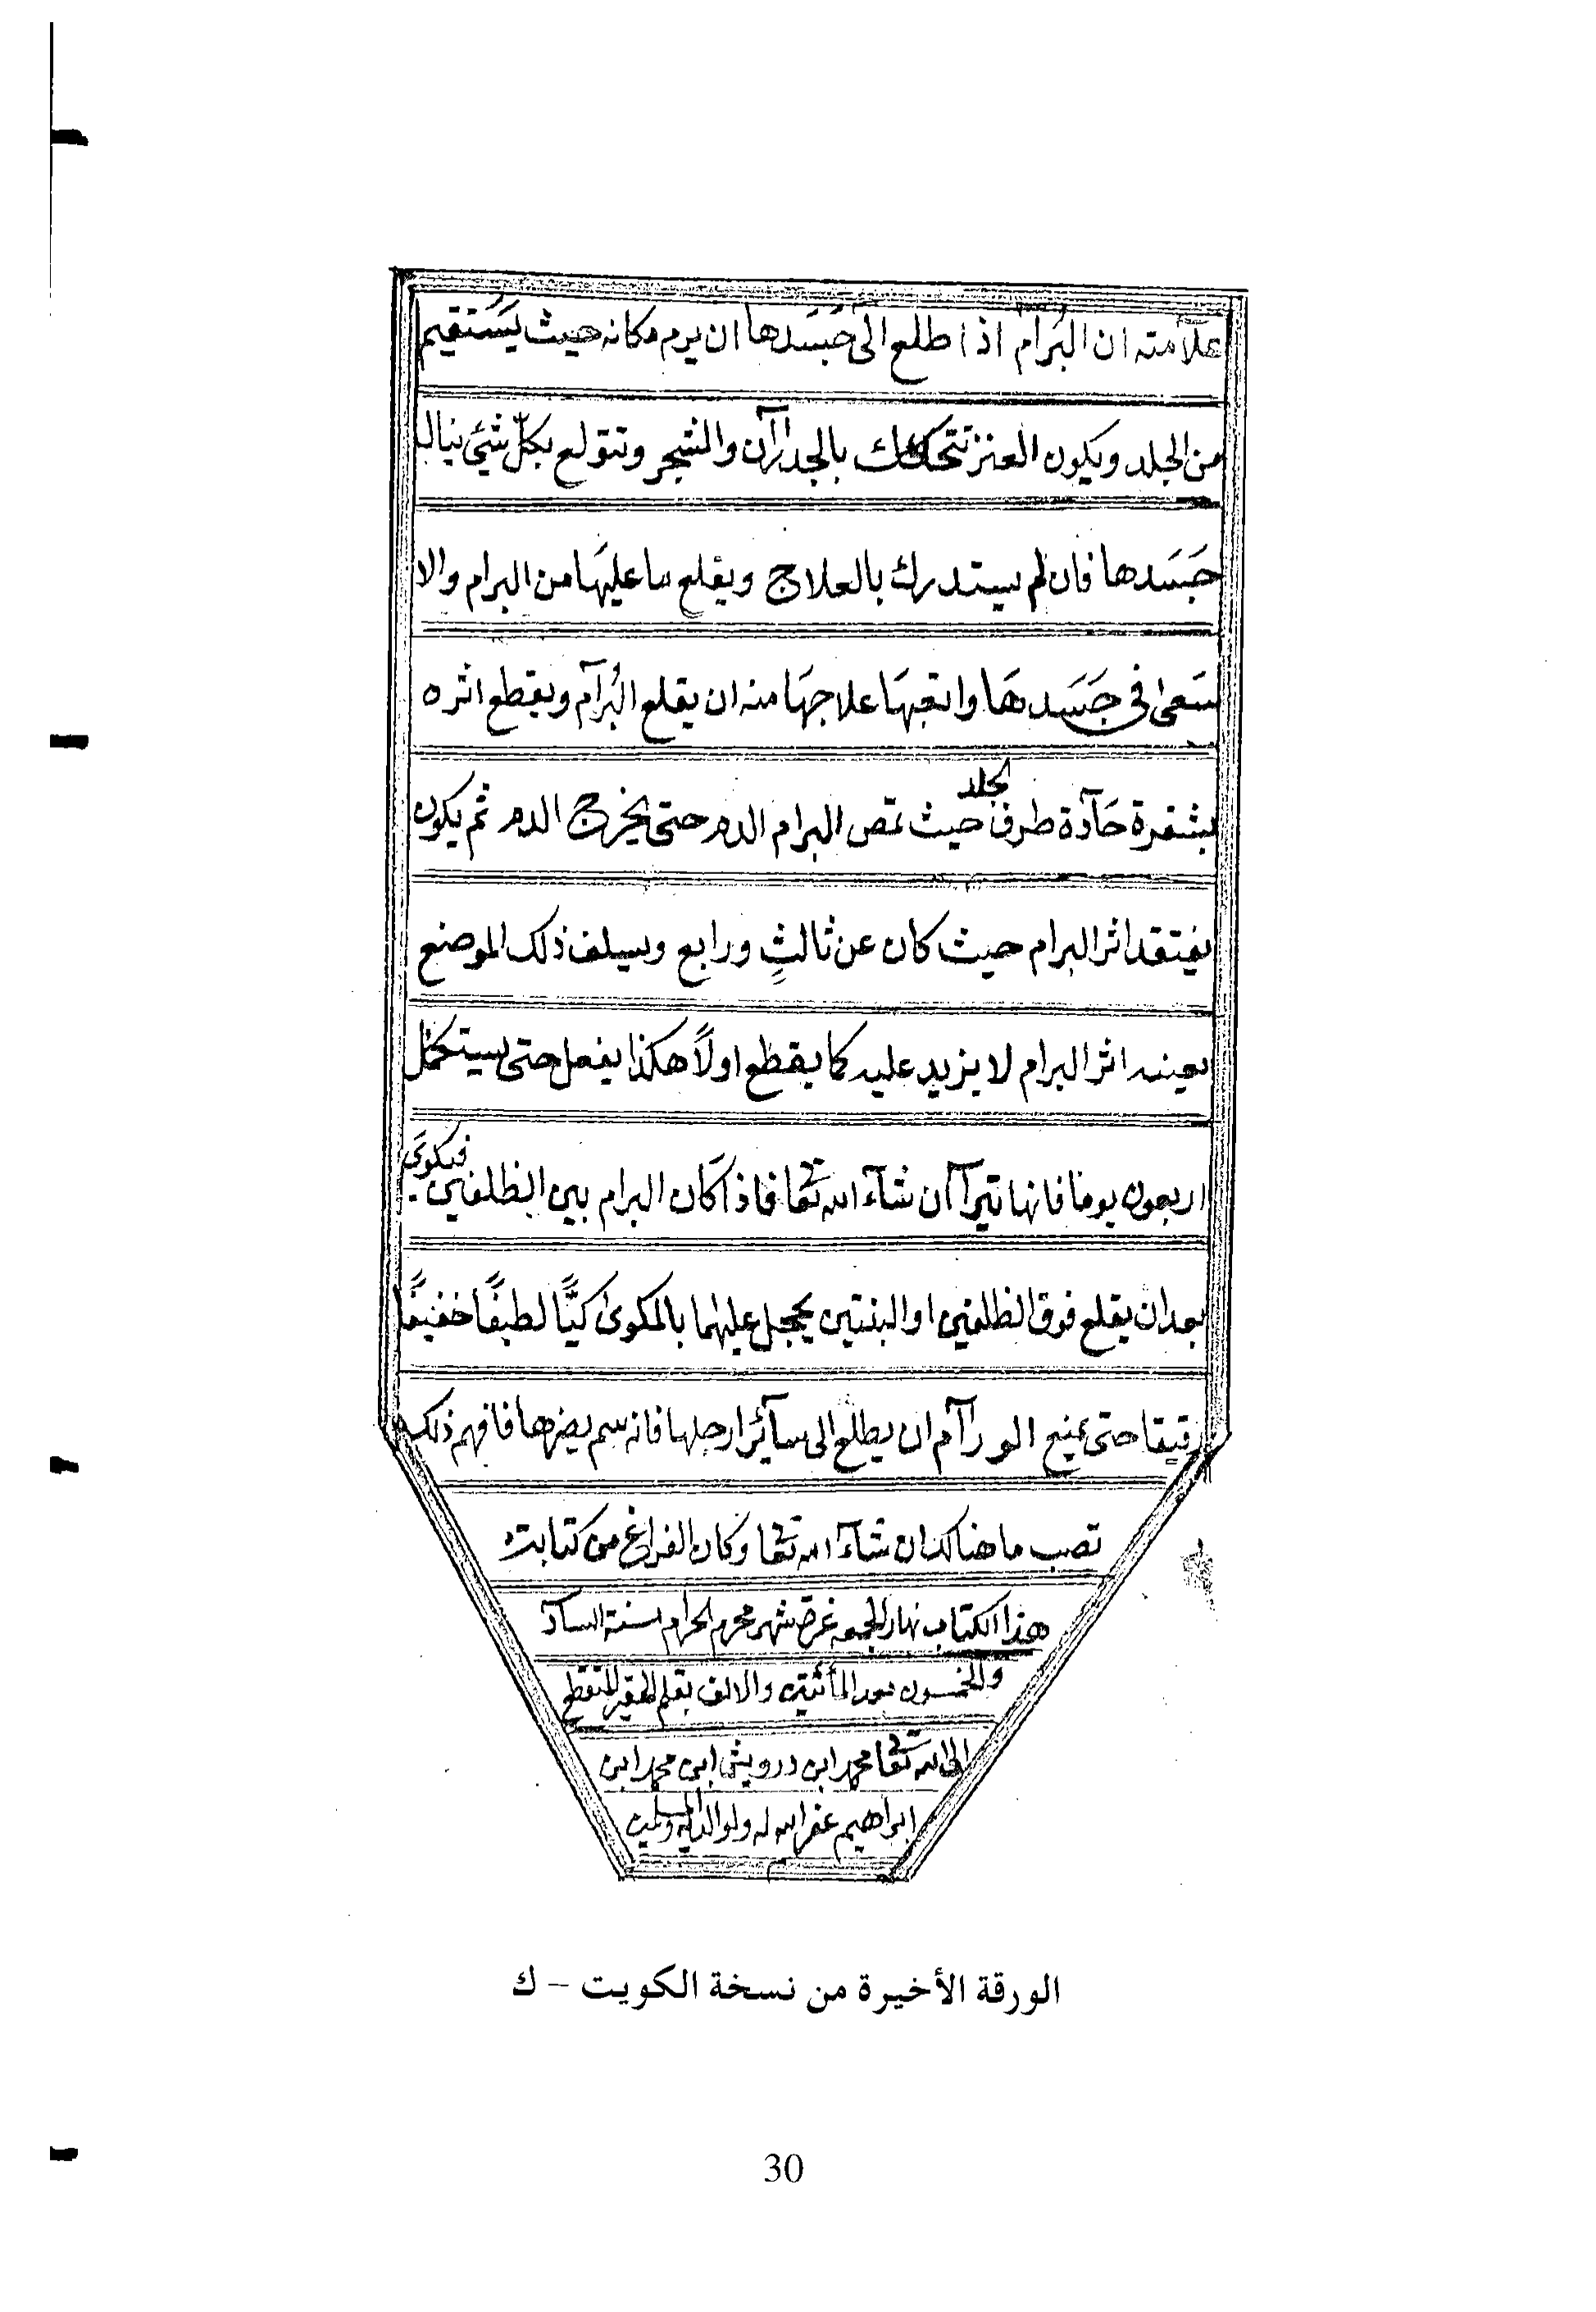 علَامته ان البُرام اذا طلع الى جَسَدها ان يرم مكانه حيث يَسْتقيم
من الجلد ويكون العنز تتحكك بالجدرآن والشجر وتتولع بكلّ شيئ
جَسَدها فان لم يستدرك بالعلاج ويقلع ما عليهَا من البرام والا
سَعىٰ فى جَسَدهَا واتعبهَا علاجهَا منه ان يقلع البُرآم ويقطع اثره
بشفرة حَآدّة طرف جلد حيث تمص البرام الدم حتى يخرج الدم ثم يكون
يفتقد اثر البرام حيث كان عن ثالثٍ ورابع وسيلف ذلك الموضع
بعينه اثر البرام لا يزيد عليه كما يقطع اولاً هكذا يفعل حتى يستكمل
اربعون يومًا فانها تبرآ ان شآء الله تعا فاذا كَان البرام بين الظلفين فيكوىَ
بعد ان يقلع فوق الظلفين او البنتين يجعل عليهما بالمكوىٰ كيًّا لطيفًا خفيفًا
رقيقا حتى يمنع الورآم ان يطلع الى سآئر ارجلها فانه سم يضرها فافهم ذلك
تصب ما هنالك ان شآء الله تعا وكان الفراغ من كتابت
هذا الكتاب نهار الجمعه غرة شهر محرم الحرام سنة السآد
والخمسون بعد المأئتين والالف بقلم الحقير
الى الله تعا محمد ابن درويش ابن محمد ابن
ابراهيم غفر الله له ولوالديه وللمسلمين
الورقة الأخيرة من نسخة الكويت – ك
30